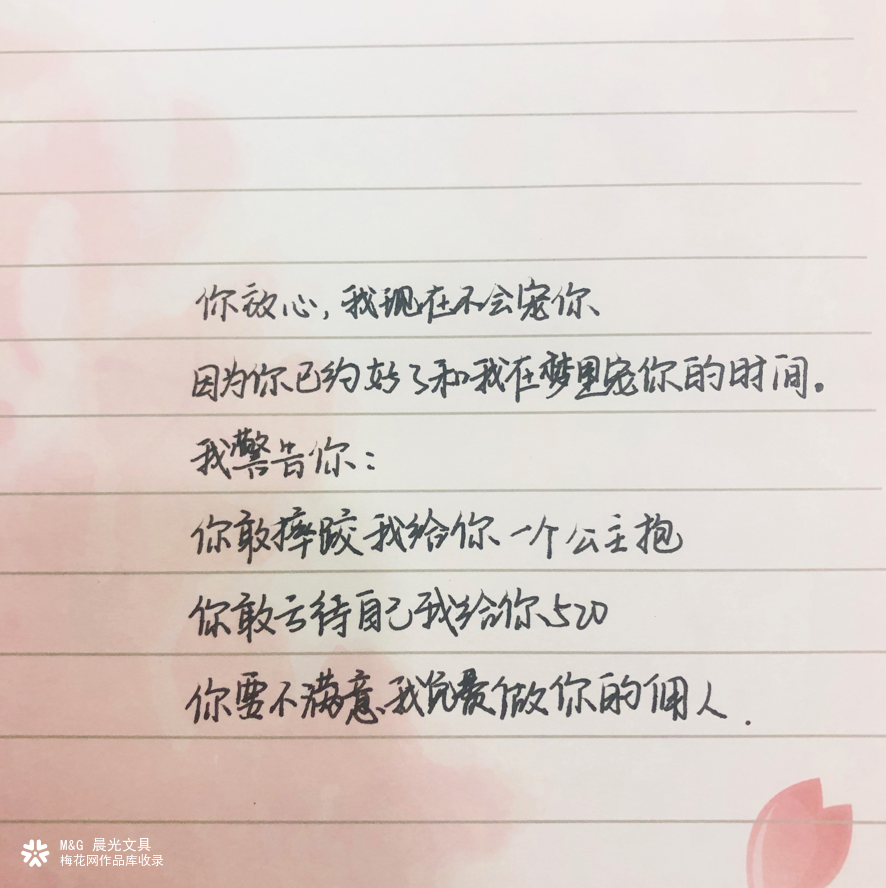 你放心,我现在不会宠你、
因为你已约好了和我在梦里宠你的时间。
我警告你:
你敢摔跤我给你一个公主抱
你敢亏待自己我给你520
你要不满意我免费做你的佣人.
M&G 晨光文具
梅花网作品库收录